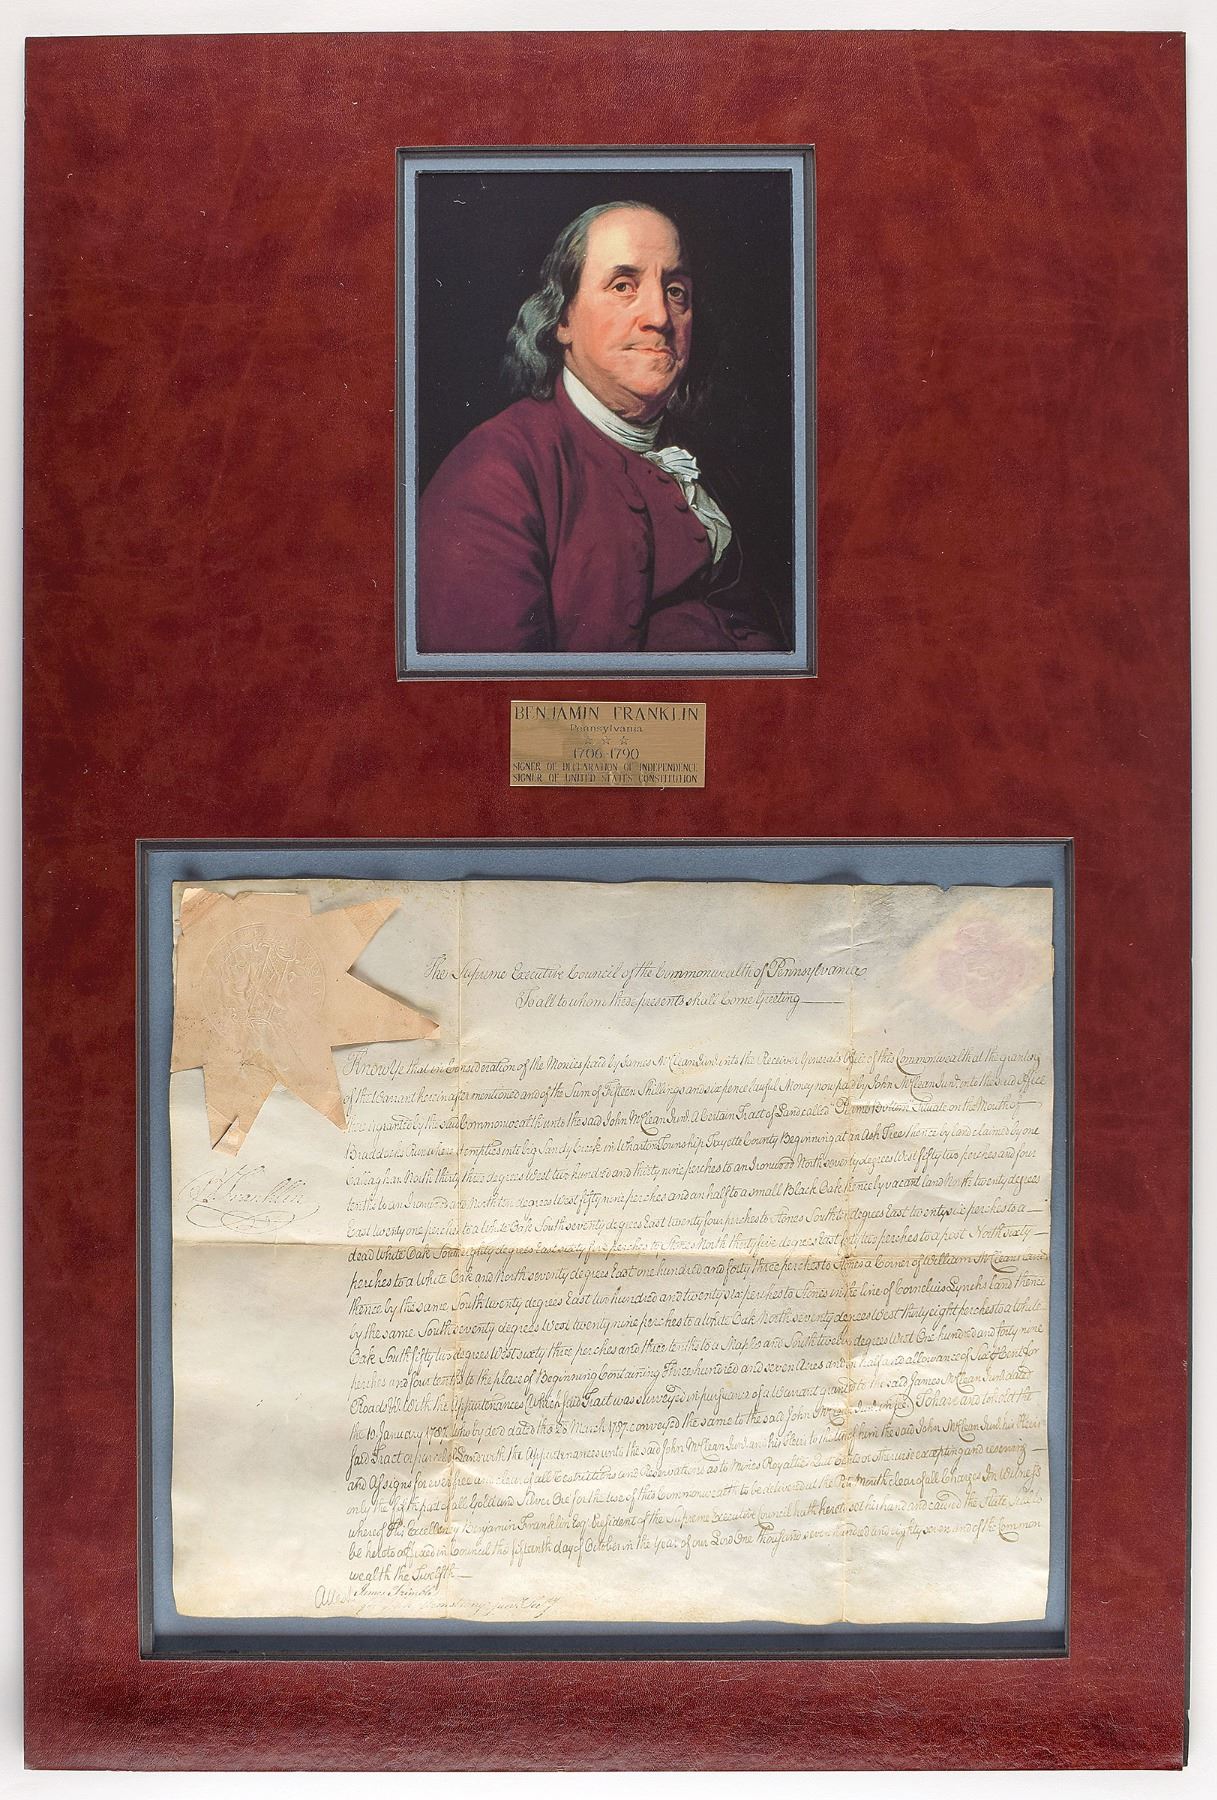 BENJAMIN FRANKLIN
Pennsylvania
1706-1790
SIGNER OF DECLARATION OF INDEPENDENCE
SIGNER OF UNITED STATES CONSTITUTION
The Supreme Executive Council of the Commonwealth of Pennsylvania
To all to whom these presents shall Come Greeting
Know Ye that in Consideration of the Monies paid by James McClean Junr. into the Receiver Generals Office of this Commonwealth at the granting
of the Warrant herein after mentioned and of the Sum of Fifteen Shillings and six pence lawful Money now paid by John McClean Junr. into the said Office
there is granted by the said Commonwealth unto the said John McClean Junr. a Certain Tract of Land called Bottom Situate on the Mouth of
Braddocks Run where it empties into big Sandy Creek in Wharton Township Fayette County Beginning at an Ash Tree thence by land claimed by one
Callaghan North thirty three degrees West two hundred and thirty nine perches to an Ironwood North seventy degrees West fifty two perches and four
tenths to an Ironwood North ten degrees West fifty nine perches and an half to a small Black Oak thence by vacant land North twenty degrees
East twenty one perches to a White Oak South seventy degrees East twenty four perches to Stones South ten degrees East twenty six perches to a
dead White Oak South eighty degrees East sixty five perches to Stones North thirty five degrees East forty two perches to a post North sixty
perches to a White Oak and North seventy degrees East one hundred and forty three perches to Stones a Corner of William McCleans land
thence by the same South twenty degrees East two hundred and twenty six perches to Stones in the line of Cornelius Lynchs land thence
by the same South seventy degrees West twenty nine perches to a White Oak North seventy degrees West thirty eight perches to a White
Oak South fifty two degrees West sixty three perches and three tenths to a Maple and South twelve degrees West One hundred and forty nine
perches and four tenths to the place of Beginning Containing Three hundred and seven Acres and an half and allowance of Six Cent for
Roads &c. With the Appurtenances (Which said Tract was surveyed in pursuance of a Warrant granted to the said James McClean Junr. dated
the 10 January 1787 who by deed dated the 23 March 1787 conveyed the same to the said John McClean Junr. in fee) To have and to hold the
said Tract or parcel of Land with the Appurtenances unto the said John McClean Junr. and his Heirs to the Use of him the said John McClean Junr. his Heirs
and Assigns for ever free and clear of all Restrictions and Reservations as to Mines Royalties Quit Rents or otherwise excepting and reserving
only the fifth part of all Gold and Silver Ore for the Use of this Commonwealth to be delivered at the Pits Mouth clear of all Charges In Witness
whereof His Excellency Benjamin Franklin Esqr. President of the Supreme Executive Council hath hereto set his hand and caused the State Seal to
be hereto affixed in Council the fifteenth day of October in the Year of our Lord One Thousand seven hundred and eighty seven and of the Common
wealth the Twelfth
B Franklin
Attest James Trimble
for Armstrong junr. Secy.